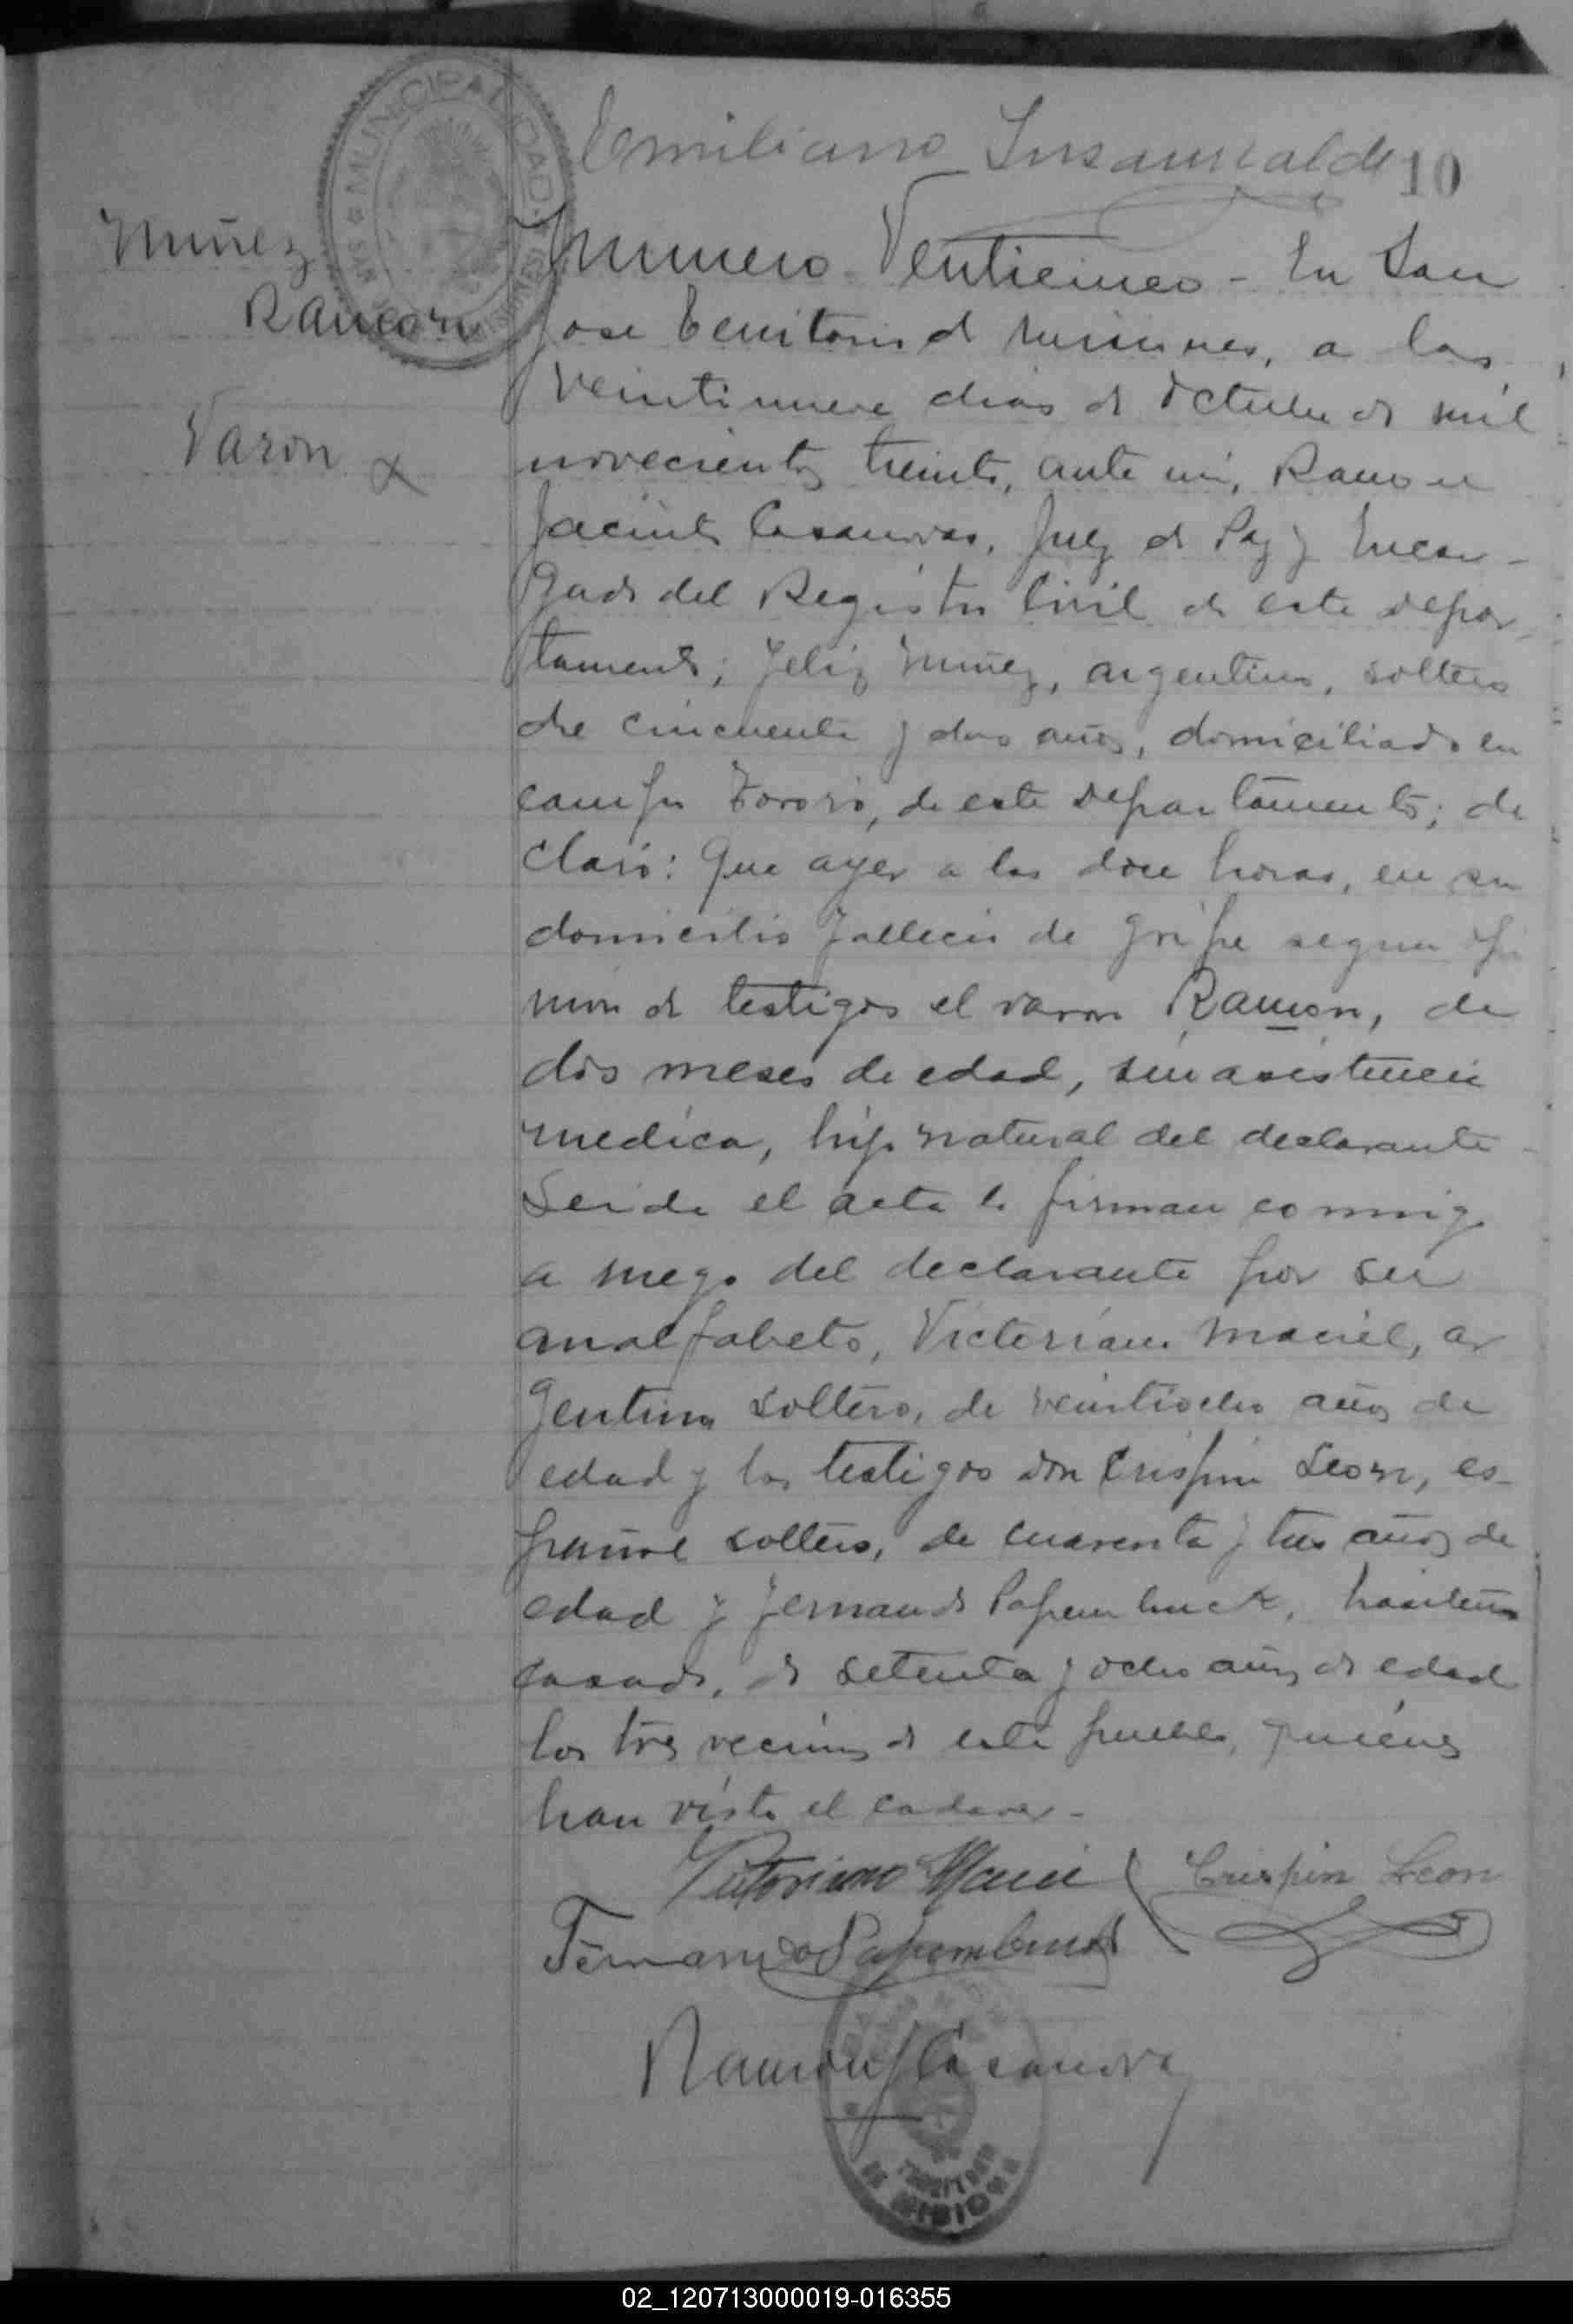 Emiliano Insaurralde
10
MUNICIPALIDAD
SAN JOSE
Nuñez
Ramon
Varon
Numero Venticinco - En San
Jose Territorio de Misiones, a los
veintinueve dias de Octubre de mil
novecientos treinta, ante mi, Ramon
Jacinto Casanovas, Juez de Paz y Encar-
gado del Registro Civil de este depar-
tamento; Feliz Nuñez, argentino, soltero
de cincuenta y dos años, domiciliado en
campo Tororó, de este departamento; de
claró: Que ayer a las doce horas, en su
domicilio fallecio de gripe segun opi
nion de testigos el varon Ramon, de
dos meses de edad, sin asistencia
medica, hijo natural del declarante
Leida el acta la firman conmigo
a ruego del declarante por ser
analfabeto, Victoriano Maciel, ar
gentino soltero, de veintiocho años de
edad y los testigos don Crispin Leon, es-
pañol soltero, de cuarenta y tres años de
edad y Fernando Papembruck,
casado, de setenta y ocho años de edad
los tres vecinos de este pueblo, quienes
han visto el cadaver -
Vitoriano Maciel Crispin Leon
Fernando Papembruck
Ramon J Casanova
TERRITORIO
DE MISIONES
02_120713000019-016355